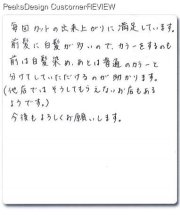 PeeksDesign CustomerREVIEW
毎回カットの出来上がりに満足しています。
前髪に白髪が多いので、カラーをするのも
前は白髪染め、あとは普通のカラーと
分けてしていただけるのが助かります。
(他店ではそうしてもらえないお店もある
ようです。)
今後もよろしくお願いします。